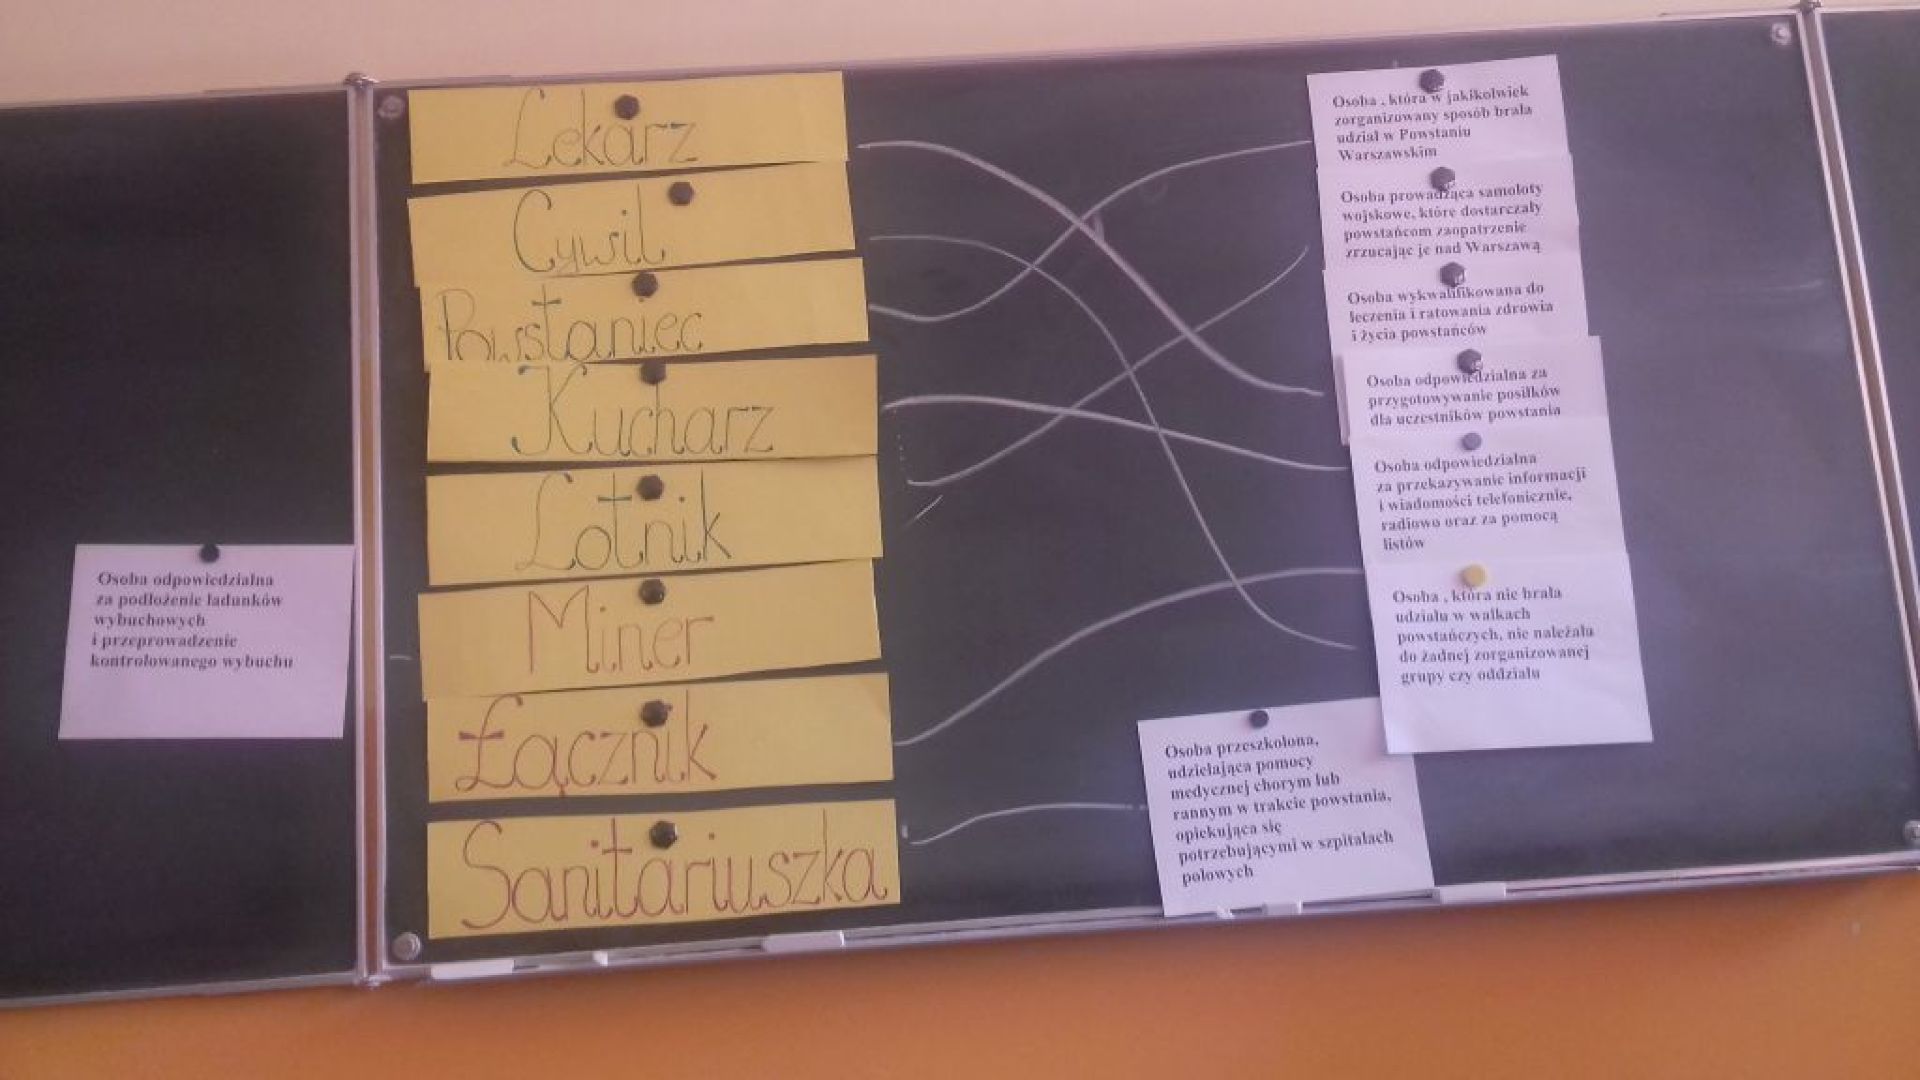 Lekarz
Cywil
Powstaniec
Kucharz
Lotnik
Miner
Łącznik
Sanitariuszka
Osoba odpowiedzialna
za podłożenie ładunków
wybuchowych
i przeprowadzenie
kontrolowanego wybuchu
Osoba , która w jakikolwiek
zorganizowany sposób brała
udział w Powstaniu
Warszawskim
Osoba prowadząca samoloty
wojskowe, które dostarczały
powstańcom zaopatrzenie
zrzucając je nad Warszawą
Osoba wykwalifikowana do
leczenia i ratowania zdrowia
i życia powstańców
Osoba odpowiedzialna za
przygotowywanie posiłków
dla uczestników powstania
Osoba odpowiedzialna
za przekazywanie informacji
i wiadomości telefonicznie,
radiowo oraz za pomocą
listów
Osoba , która nie brała
udziału w walkach
powstańczych, nie należała
do żadnej zorganizowanej
grupy czy oddziału
Osoba przeszkolona,
udzielająca pomocy
medycznej chorym lub
rannym w trakcie powstania,
opiekująca się
potrzebującymi w szpitalach
polowych